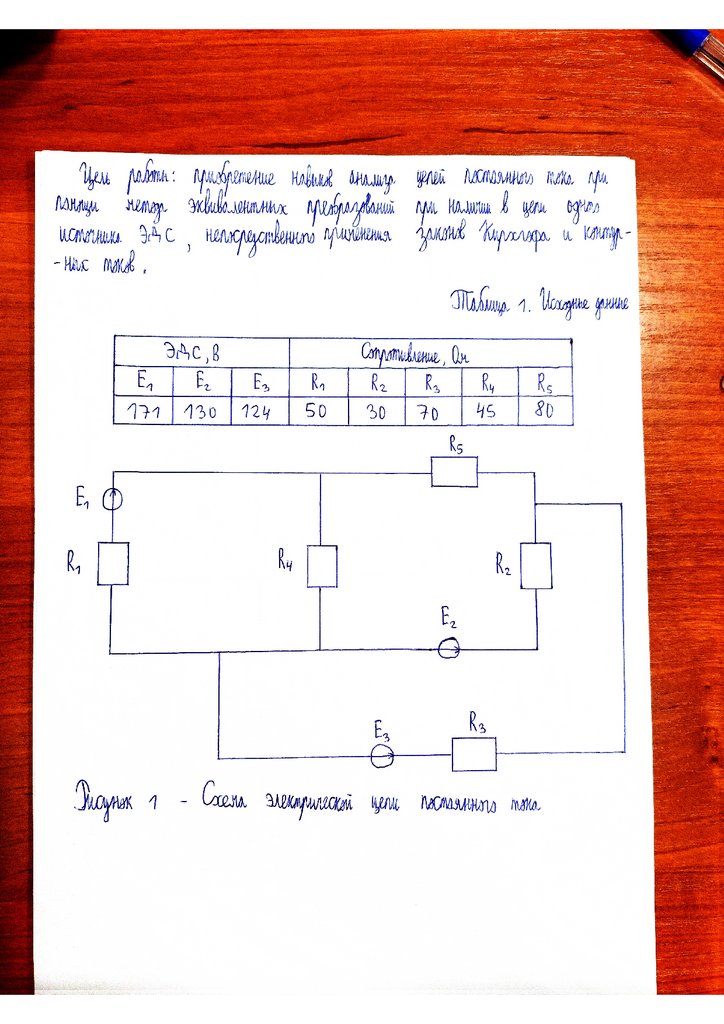 Цель работы: приобретение навыков анализа цепей постоянного тока при
помощи метода эквивалентных преобразований при наличии в цепи одного
источника ЭДС, непосредственного применения законов Кирхгофа и контур-
-ных токов.
Таблица 1. Исходные данные
ЭДС, В Сопротивление, Ом
E1 E2 E3 R1 R2 R3 R4 R5
171 130 124 50 30 70 45 80
R5
E1
R1 R4 R2
E2
E3 R3
Рисунок 1 - Схема электрической цепи постоянного тока